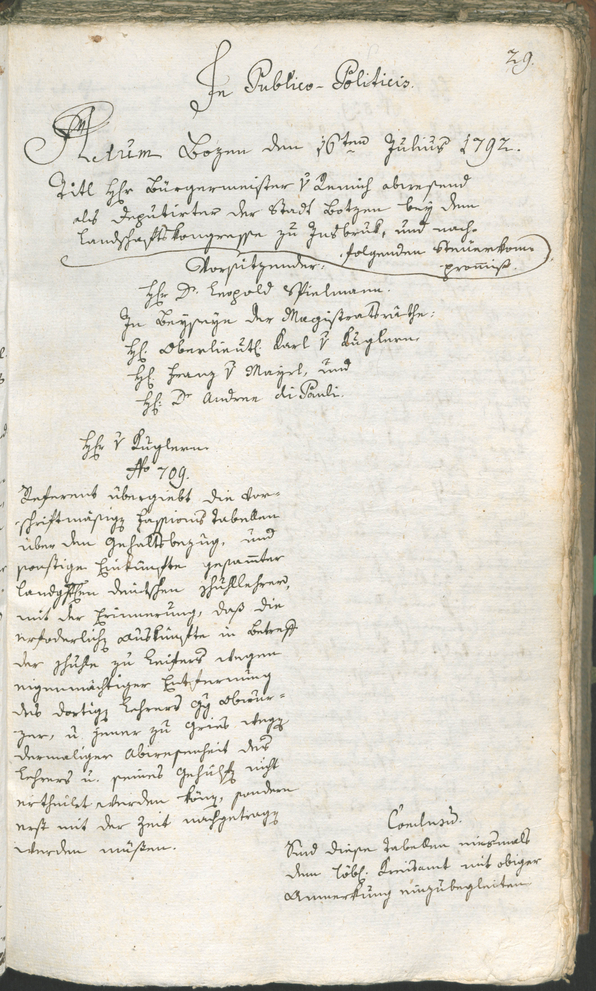 29.
In Publico-Politicis.
Actum Bozen den 16ten Julius 1792.
Titl Hhr Bürgermeister v Remich abwesend
als Deputirter der Stadt Botzen bey dem
Landschaftskongresse zu Insbruk, und nach-
folgenden Steuerkom-
promiß.
Vorsitzender:
Hhr Dr Leopold Spielmann.
In Beyseyn der Magistratsräthe:
HH. Oberlieut. Karl v Kuglern.
HH. Franz v Mayrl, und
HH. Dr Andree di Pauli.
Hhr v Kuglern.
No 709.
Referent übergiebt die vor-
schriftmäsige Fassions Tabellen
über den Gehaltsbezug, und
sonstige Einkünfte gesam̅ter
Landgschen deutschen Schullehrer,
mit der Erinnerung, daß die
erforderliche Auskünfte in betreff
der Schule zu Leifers wegen
eigenmächtiger Entfernung
des dortigen Lehrers
u. jener zu Gries wegen
dermaliger Abwesenheit des
Lehrers u. seines Gehülfen nicht
ertheilt werden könen, sondern
erst mit der Zeit nachgetragen
werden müßen.
Conclusum.
Sind diese Tabellen niesmals
dem löbl. Kreisamt mit obiger
Anmerkung einzubegleiten